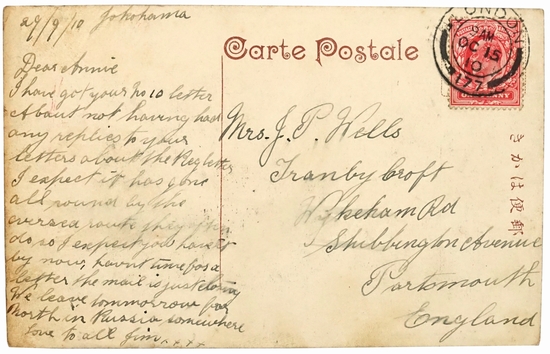 29/9/10 Yokohama
Dear Annie
I have got your No 10 letter
About not having had
any replies to your
letters about the Reg letter
I expect it has gone
all round by the
oversea route they often
do so I expect you have it
by now, havnt time for a
letter the mail is just closing
We leave tommorrow for
North in Russia somewhere
love to all Jim....
Carte Postale
LONDON
OC 15
10
177
ONE PENNY
Mrs. J. P. Wells
Tranby Croft
Wykeham Rd
Stubbington Avenue
Portsmouth
England
きかは便郵